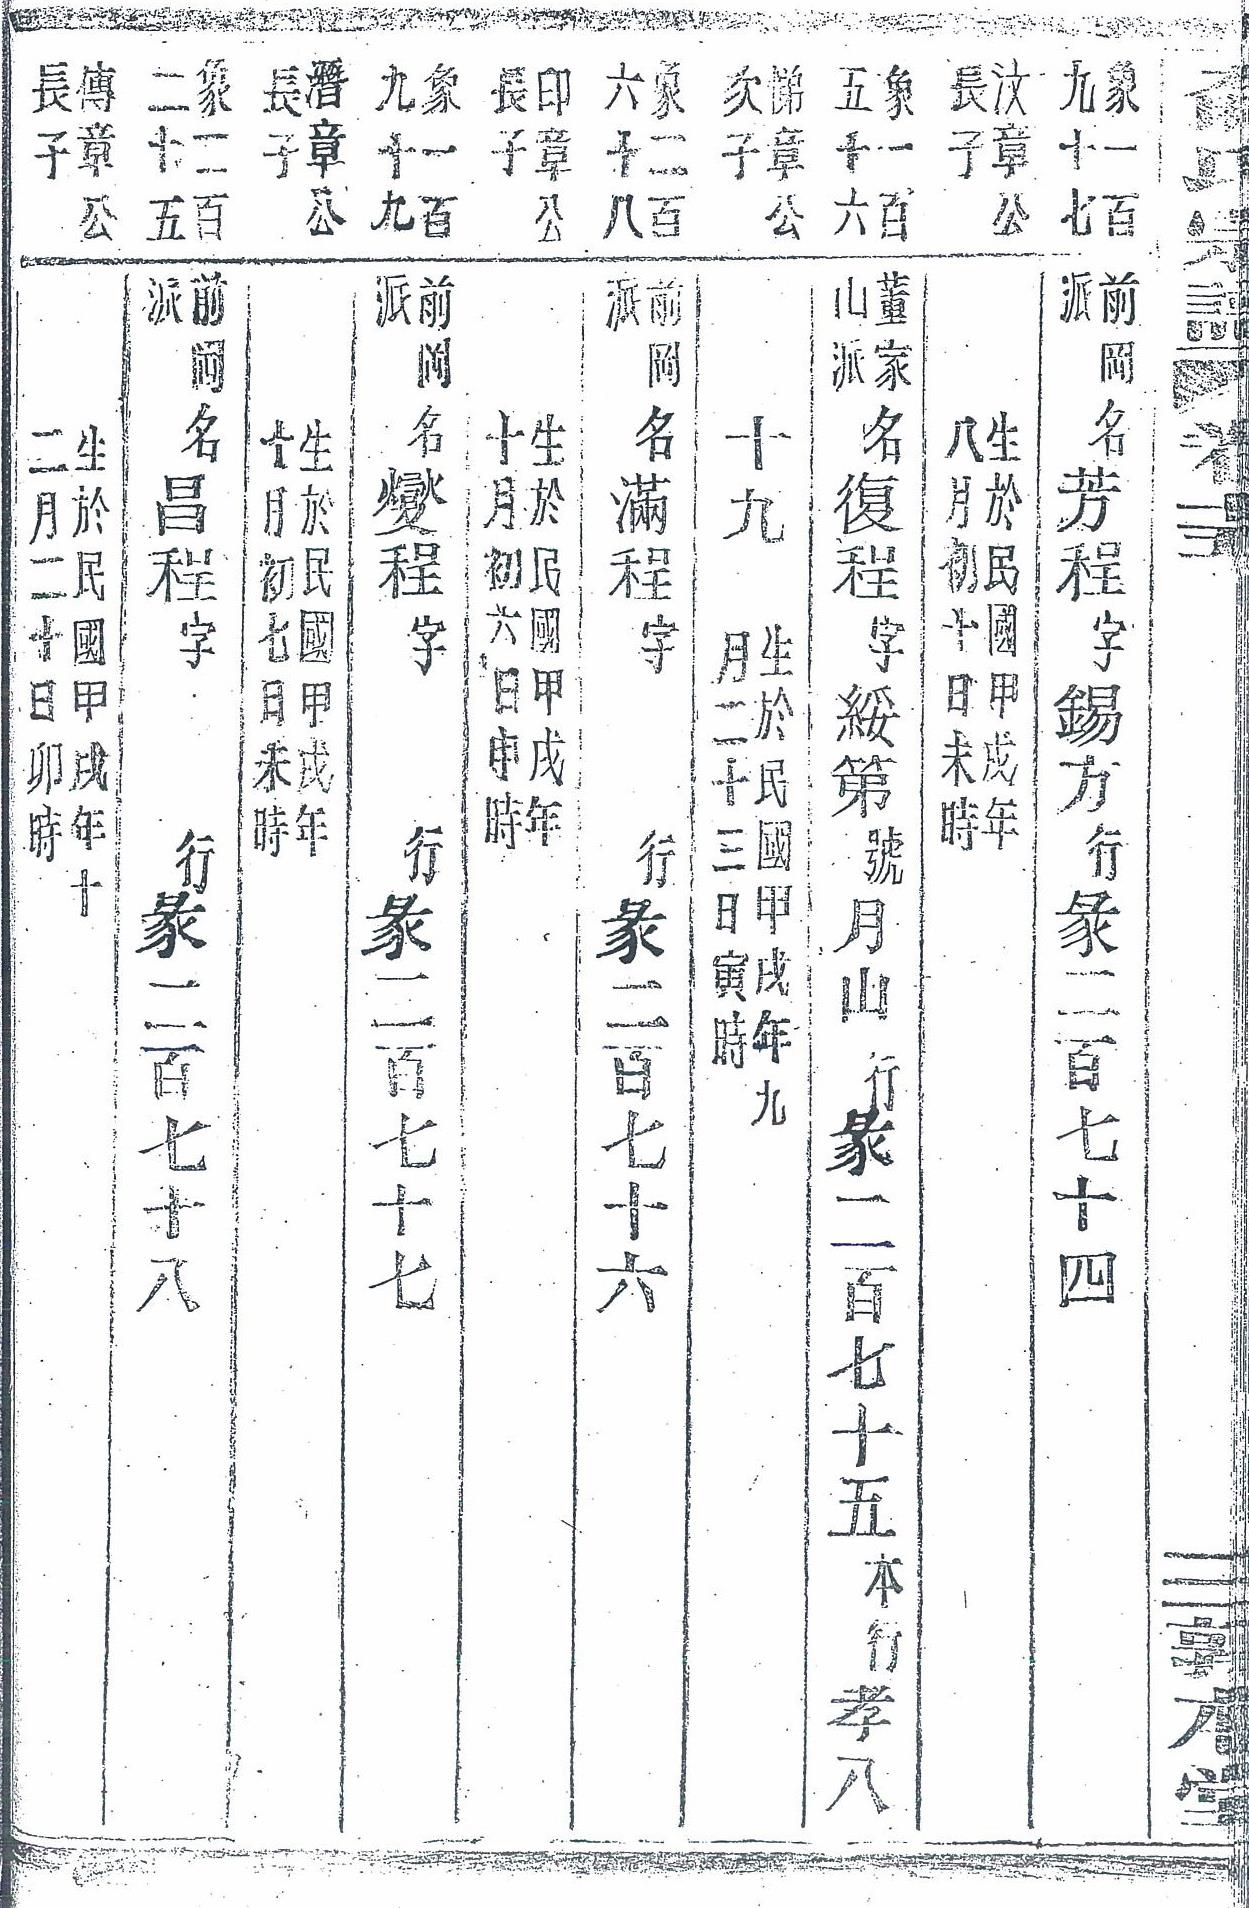 象一百
九十七
前岡
派
名芳程字錫方行彖二百七十四
汶章公
長子
生於民國甲戌年
八月初十日未時
象一百
五十六
董家
山派
名復程字綏第號月山行彖二百七十五本行孝八
悌章公
次子
十九
生於民國甲戌年九
月二十三日寅時
象二百
六十八
前岡
派
名滿程字行彖二百七十六
印章公
長子
生於民國甲戌年
十月初六日申時
象一百
九十九
前岡
派
名燮程字行彖二百七十七
潛章公
長子
生於民國甲戌年
十月初七日未時
象二百
二十五
前岡
派
名昌程字行彖二百七十八
傳章公
長子
生於民國甲戌年十
二月二十日卯時